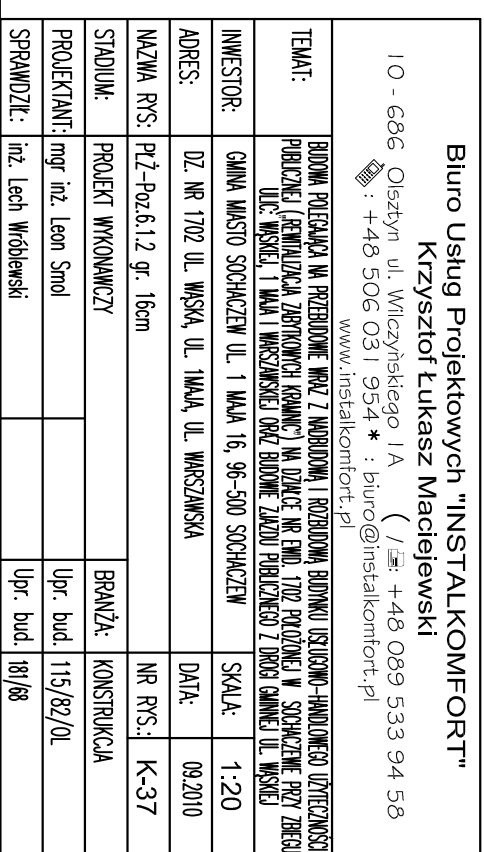 Biuro Usług Projektowych "INSTALKOMFORT"
Krzysztof Łukasz Maciejewski
10 - 686 Olsztyn ul. Wilczyńskiego 1A ( / : +48 089 533 94 58
: +48 506 031 954 * : biuro@instalkomfort.pl
www.instalkomfort.pl
TEMAT:
BUDOWA POLEGAJĄCA NA PRZEBUDOWIE WRAZ Z NADBUDOWĄ I ROZBUDOWĄ BUDYNKU USŁUGOWO-HANDLOWEGO UŻYTECZNOŚCI
PUBLICZNEJ ("REWITALIZACJA ZABYTKOWYCH KRAMNIC") NA DZIAŁCE NR EWID. 1702 POŁOŻONEJ W SOCHACZEWIE PRZY ZBIEGU
ULIC: WĄSKIEJ, 1 MAJA I WARSZAWSKIEJ ORAZ BUDOWIE ZJAZDU PUBLICZNEGO Z DROGI GMINNEJ UL. WĄSKIEJ
INWESTOR: GMINA MIASTO SOCHACZEW UL. 1 MAJA 16, 96-500 SOCHACZEW SKALA: 1:20
ADRES: DZ. NR 1702 UL. WĄSKA, UL. 1MAJA, UL. WARSZAWSKA DATA: 09.2010
NAZWA RYS: PŁŻ-Poz.6.1.2 gr. 16cm NR RYS.: K-37
STADIUM: PROJEKT WYKONAWCZY BRANŻA: KONSTRUKCJA
PROJEKTANT: mgr inż. Leon Smol Upr. bud. 115/82/OL
SPRAWDZIŁ: inż. Lech Wróblewski Upr. bud. 181/68